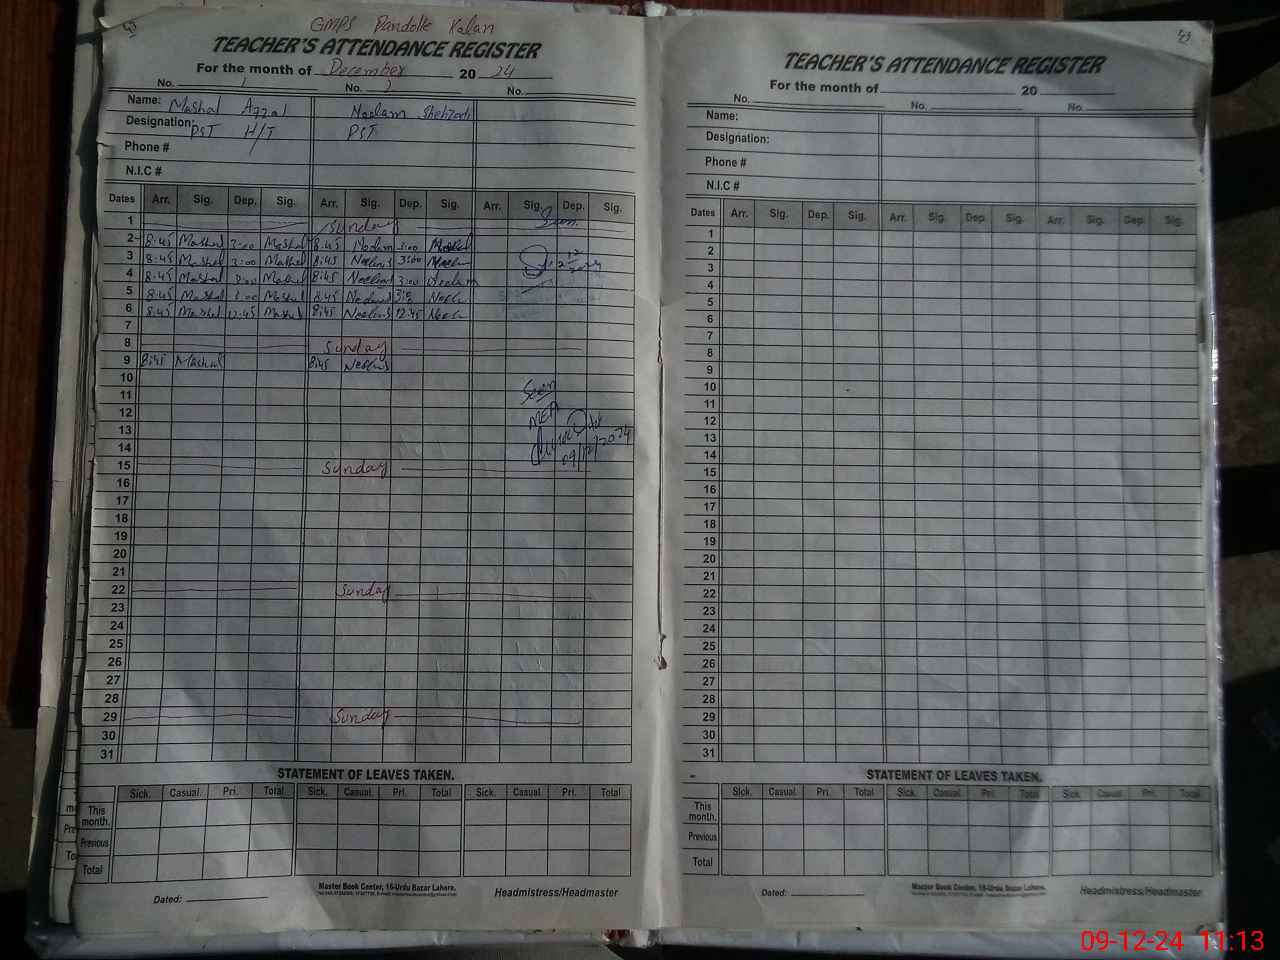 GMPS Pandoke Kalan
TEACHER'S ATTENDANCE REGISTER
For the month of December 20 24
No. 1 No. 2 No.
Name: Mashal Afzal Neelam Shehzadi
Designation: PST H/T PST
Phone #
N.I.C #
Dates Arr. Sig. Dep. Sig. Arr. Sig. Dep. Sig. Arr. Sig. Dep. Sig.
1 Sunday Seen
2 8:45 Mashal 3:00 Mashal 8:45 Neelam 3:00
3 8:45 Mashal 3:00 Mashal 8:45 Neelam 3:00 Neelam
4 8:45 Mashal 3:00 Mashal 8:45 Neelam 3:00 Neelam
5 8:45 Mashal 3:00 Mashal 8:45 Neelam
6 8:45 Mashal 12:45 Mashal 8:45 Neelam 12:45
7
8 Sunday
9 8:45 Mashal 8:45 Neelam
10
11 Seen
12 MEA
13
14 09/12/2024
15 Sunday
16
17
18
19
20
21
22 Sunday
23
24
25
26
27
28
29 Sunday
30
31
STATEMENT OF LEAVES TAKEN.
Sick. Casual. Pri. Total Sick. Casual. Pri. Total Sick. Casual. Pri. Total
This month.
Previous
Total
Master Book Center, 16-Urdu Bazar Lahore.
Dated: Headmistress/Headmaster
TEACHER'S ATTENDANCE REGISTER
For the month of 20
No. No. No.
Name:
Designation:
Phone #
N.I.C #
Dates Arr. Sig. Dep. Sig. Arr. Sig. Dep. Sig. Arr. Sig. Dep. Sig.
1
2
3
4
5
6
7
8
9
10
11
12
13
14
15
16
17
18
19
20
21
22
23
24
25
26
27
28
29
30
31
STATEMENT OF LEAVES TAKEN.
Sick. Casual. Pri. Total Sick. Casual. Pri. Total Sick. Casual. Pri. Total
This month.
Previous
Total
Master Book Center, 16-Urdu Bazar Lahore.
Dated: Headmistress/Headmaster
09-12-24 11:13